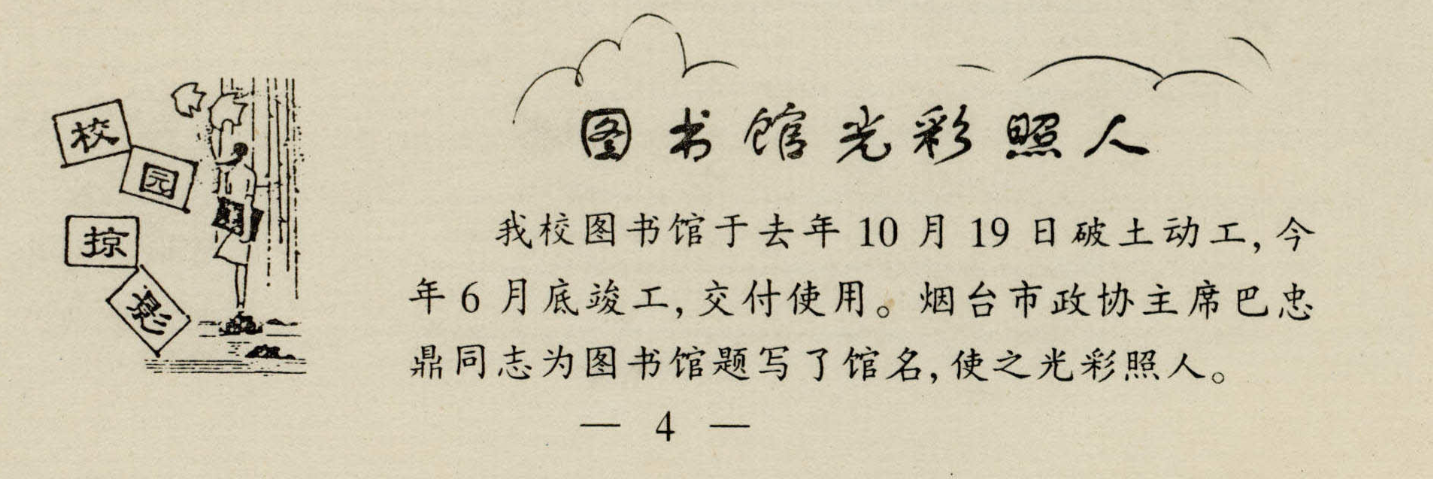 校园掠影
图书馆光彩照人
我校图书馆于去年10月19日破土动工,今
年6月底竣工,交付使用。烟台市政协主席巴忠
鼎同志为图书馆题写了馆名,使之光彩照人。
— 4 —